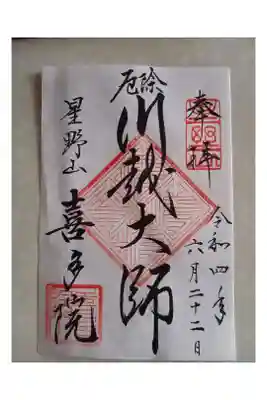 奉拝
令和四年
六月二十二日
厄除
川越大師
星野山
喜多院